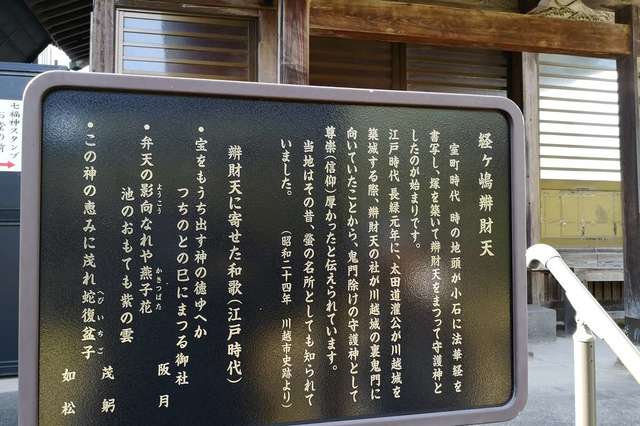 経ヶ嶋辨財天
室町時代 時の地頭が小石に法華経を
書写し、塚を築いて辨財天をまつって守護神と
したのが始まりです。
江戸時代 長緑元年に、太田道灌公が川越城を
築城する際、辨財天の社が川越城の裏鬼門に
向いていたことから、鬼門除けの守護神として
尊崇(信仰)厚かったと伝えられています。
当地はその昔、蛍の名所としても知られて
いました。
(昭和二十四年 川越市史跡より)
辨財天に寄せた和歌(江戸時代)
・宝をもうち出す神の徳ゆへか
つちのとの巳にまつる御社
阪月
・弁天の影向なれや燕子花
ようこう
かきつばた
池のおもても紫の雲
茂躬
・この神の恵みに茂れ蛇復盆子
へびいちご
如松
七福神スタンプ